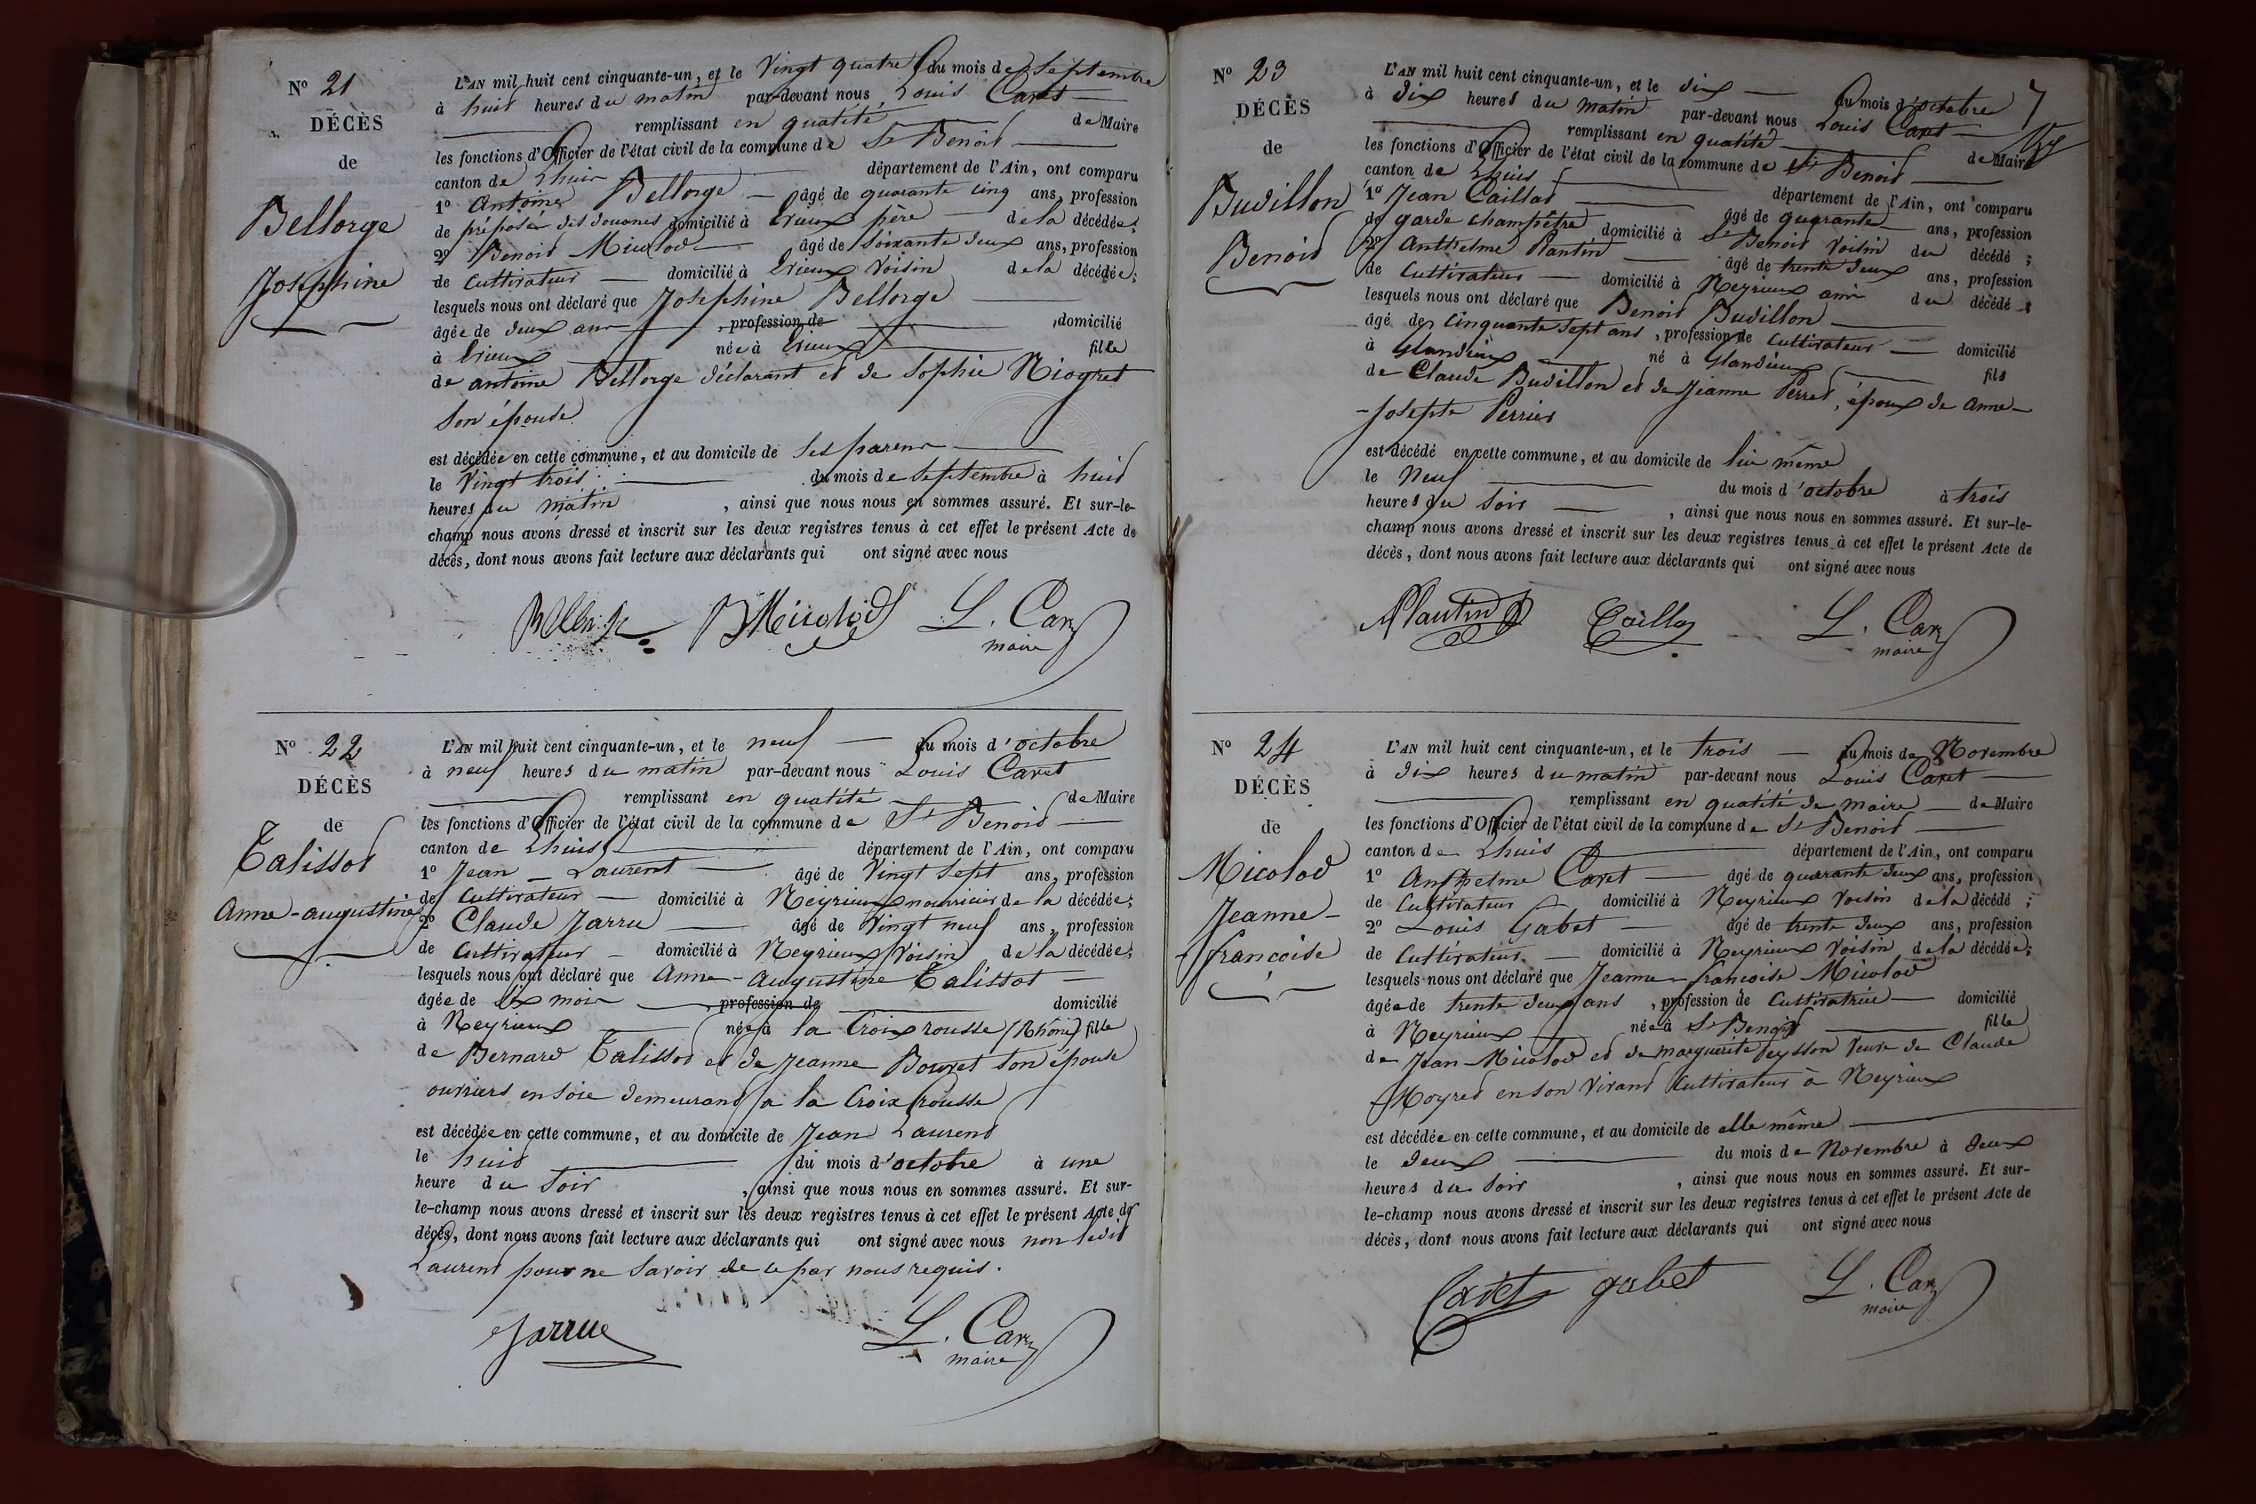 N° 21
DÉCÈS
de
Bellorge
Josephine
L'AN mil huit cent cinquante-un, et le Vingt quatre du mois de Septembre
à huit heures du matin par-devant nous Louis Caret
remplissant en qualité de Maire
les fonctions d'Officier de l'état civil de la commune de St Benoit
canton de Lhuis département de l'Ain, ont comparu
1° Antoine Bellorge âgé de quarante cinq ans, profession
de préposé des douanes domicilié à Evieux père de la décédée;
2° Benoit Micolod âgé de soixante deux ans, profession
de Cultivateur domicilié à Evieux Voisin de la décédée;
lesquels nous ont déclaré que Josephine Bellorge
âgée de deux ans , profession de , domicilié
à Evieux née à Evieux fille
de antoine Bellorge déclarant et de Sophie Niogret
son épouse
est décédée en cette commune, et au domicile de ses parens
le Vingt trois du mois de Septembre à huit
heures du matin , ainsi que nous nous en sommes assuré. Et sur-le-
champ nous avons dressé et inscrit sur les deux registres tenus à cet effet le présent Acte de
décès, dont nous avons fait lecture aux déclarants qui ont signé avec nous
B Micolod L. Caret
maire
N° 22
DÉCÈS
de
Talissot
Anne-augustine
L'AN mil huit cent cinquante-un, et le neuf du mois d'octobre
à neuf heures du matin par-devant nous Louis Caret
remplissant en qualité de Maire
les fonctions d'Officier de l'état civil de la commune de St Benoit
canton de Lhuis département de l'Ain, ont comparu
1° Jean Laurent âgé de Vingt sept ans, profession
de Cultivateur domicilié à Neyrieux nourricier de la décédée;
2° Claude Jarru âgé de Vingt neuf ans, profession
de Cultivateur domicilié à Neyrieux Voisin de la décédée;
lesquels nous ont déclaré que Anne-Augustine Talissot
âgée de six mois , profession de domicilié
à Neyrieux née à la Croix rousse (Rhône) fille
de Bernard Talissot et de Jeanne Bouret son épouse
ouvriers en soie demeurant à la Croix rousse
est décédée en cette commune, et au domicile de Jean Laurent
le huit du mois d'octobre à une
heure du soir , ainsi que nous nous en sommes assuré. Et sur-
le-champ nous avons dressé et inscrit sur les deux registres tenus à cet effet le présent Acte de
décès, dont nous avons fait lecture aux déclarants qui ont signé avec nous non ledit
Laurent pour ne savoir de ce par nous requis.
Jarrue L. Caret
maire
N° 23
DÉCÈS
de
Budillon
Benoit
L'AN mil huit cent cinquante-un, et le dix du mois d'octobre
à dix heures du matin par-devant nous Louis Caret
remplissant en qualité de Maire
les fonctions d'Officier de l'état civil de la commune de St Benoit
canton de Lhuis département de l'Ain, ont comparu
1° Jean Caillat âgé de quarante ans, profession
de garde champêtre domicilié à St Benoit Voisin du décédé ;
2° Anthelme Plantin âgé de trente deux ans, profession
de Cultivateur domicilié à Neyrieux ami du décédé ;
lesquels nous ont déclaré que Benoit Budillon
âgé de cinquante sept ans , profession de Cultivateur domicilié
à Glandieux né à Glandieux fils
de Claude Budillon et de Jeanne Perret, époux de Anne-
-Josepte Perrier
est décédé en cette commune, et au domicile de lui même
le Neuf du mois d'octobre à trois
heures du soir , ainsi que nous nous en sommes assuré. Et sur-le-
champ nous avons dressé et inscrit sur les deux registres tenus à cet effet le présent Acte de
décès, dont nous avons fait lecture aux déclarants qui ont signé avec nous
APlantin Caillat L. Caret
maire
N° 24
DÉCÈS
de
Micolod
Jeanne-
francoise
L'AN mil huit cent cinquante-un, et le trois du mois de Novembre
à dix heures du matin par-devant nous Louis Caret
remplissant en qualité de maire de Maire
les fonctions d'Officier de l'état civil de la commune de St Benoit
canton de Lhuis département de l'Ain, ont comparu
1° Anthelme Caret âgé de quarante deux ans, profession
de Cultivateur domicilié à Neyrieux Voisin de la décédé ;
2° Louis Gabet âgé de trente deux ans, profession
de Cultivateur domicilié à Neyrieux Voisin de la décédée;
lesquels nous ont déclaré que Jeanne-francoise Micolod
âgée de trente deux ans , profession de Cultivatrice domicilié
à Neyrieux née à St Benoit fille
de Jean Micolod et de marguerite Peysson Veuve de Claude
Moyret en son Vivant Cultivateur à Neyrieux
est décédée en cette commune, et au domicile de elle même
le deux du mois de Novembre à deux
heures du soir , ainsi que nous nous en sommes assuré. Et sur-
le-champ nous avons dressé et inscrit sur les deux registres tenus à cet effet le présent Acte de
décès, dont nous avons fait lecture aux déclarants qui ont signé avec nous
Caret gabet L. Caret
maire